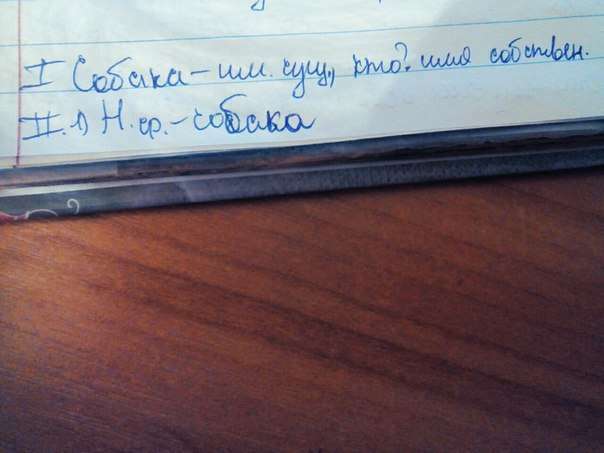 I Собака – им. сущ., кто? имя собствен.
II. 1) Н. ф. – собака